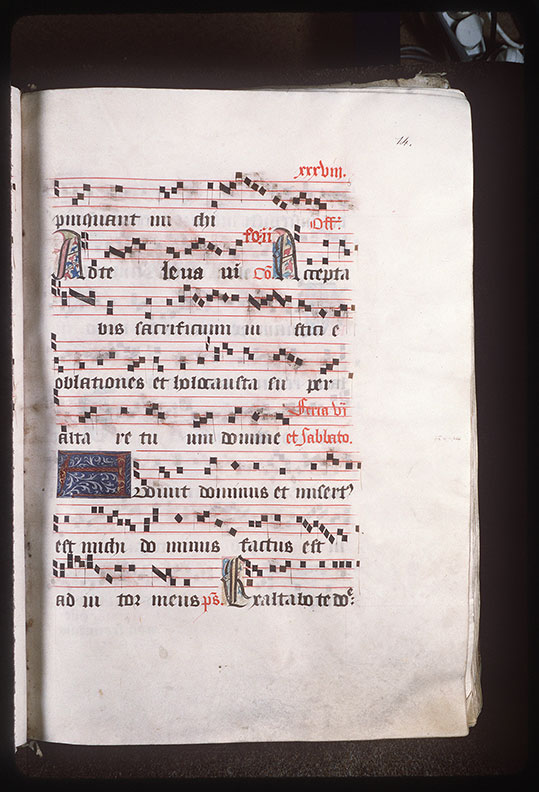 14.
xxxviii.
pinquant mi chi Off:
Ad te levavi fo.ii Cō Accepta
bis sacrificium iu stici e
oblationes et holocausta su per
alta re tu um domine feria vi
et sabbato.
Avdivit dominus et misert⁹
est michi do minus factus est
ad iu tor meus ps. Exaltabo te doe: